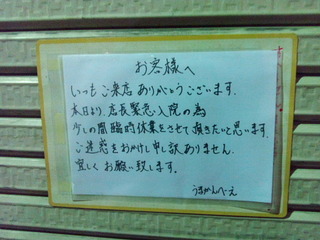 お客様へ
いつもご来店ありがとうございます.
本日より、店長緊急入院の為
少しの間臨時休業をさせて頂きたいと思います.
ご迷惑をおかけし申し訳ありません.
宜しくお願い致します.
うまかんべーえ